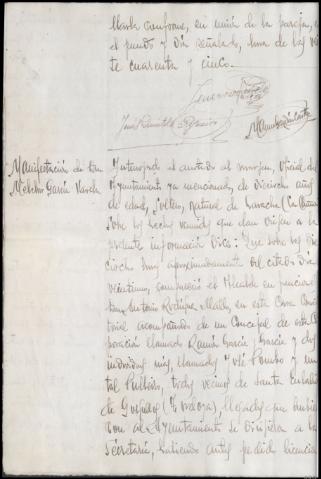 llarla conforme, en unión de la pareja, en
el punto y día señalado, hora de las vein
te cuarenta y cinco.
Manifestación de don
Melchor García Varela
Interrogado el anotado al margen, Oficial del
Ayuntamiento ya mencionado, de dieciocho años
de edad, soltero, natural de Laracha (La Coruña)
sobre los hechos venidos que dan origen a la
presente información Dice: Que sobre las diez
y ocho horas aproximadamente del citado día
veintiuno, compareció el Alcalde en funciones
Don Antonio Rodríguez, en esta Casa Consis
torial acompañado de un Concejal de esta Cor
poración llamado Ramón García García y dos
individuos más, llamados José Pombo y un
tal Pulleiro, todos vecinos de Santa Eulalia
de, los cuales que subie
ron al Ayuntamiento se dirigieron a la
Secretaría, habiendo antes pedido licencia